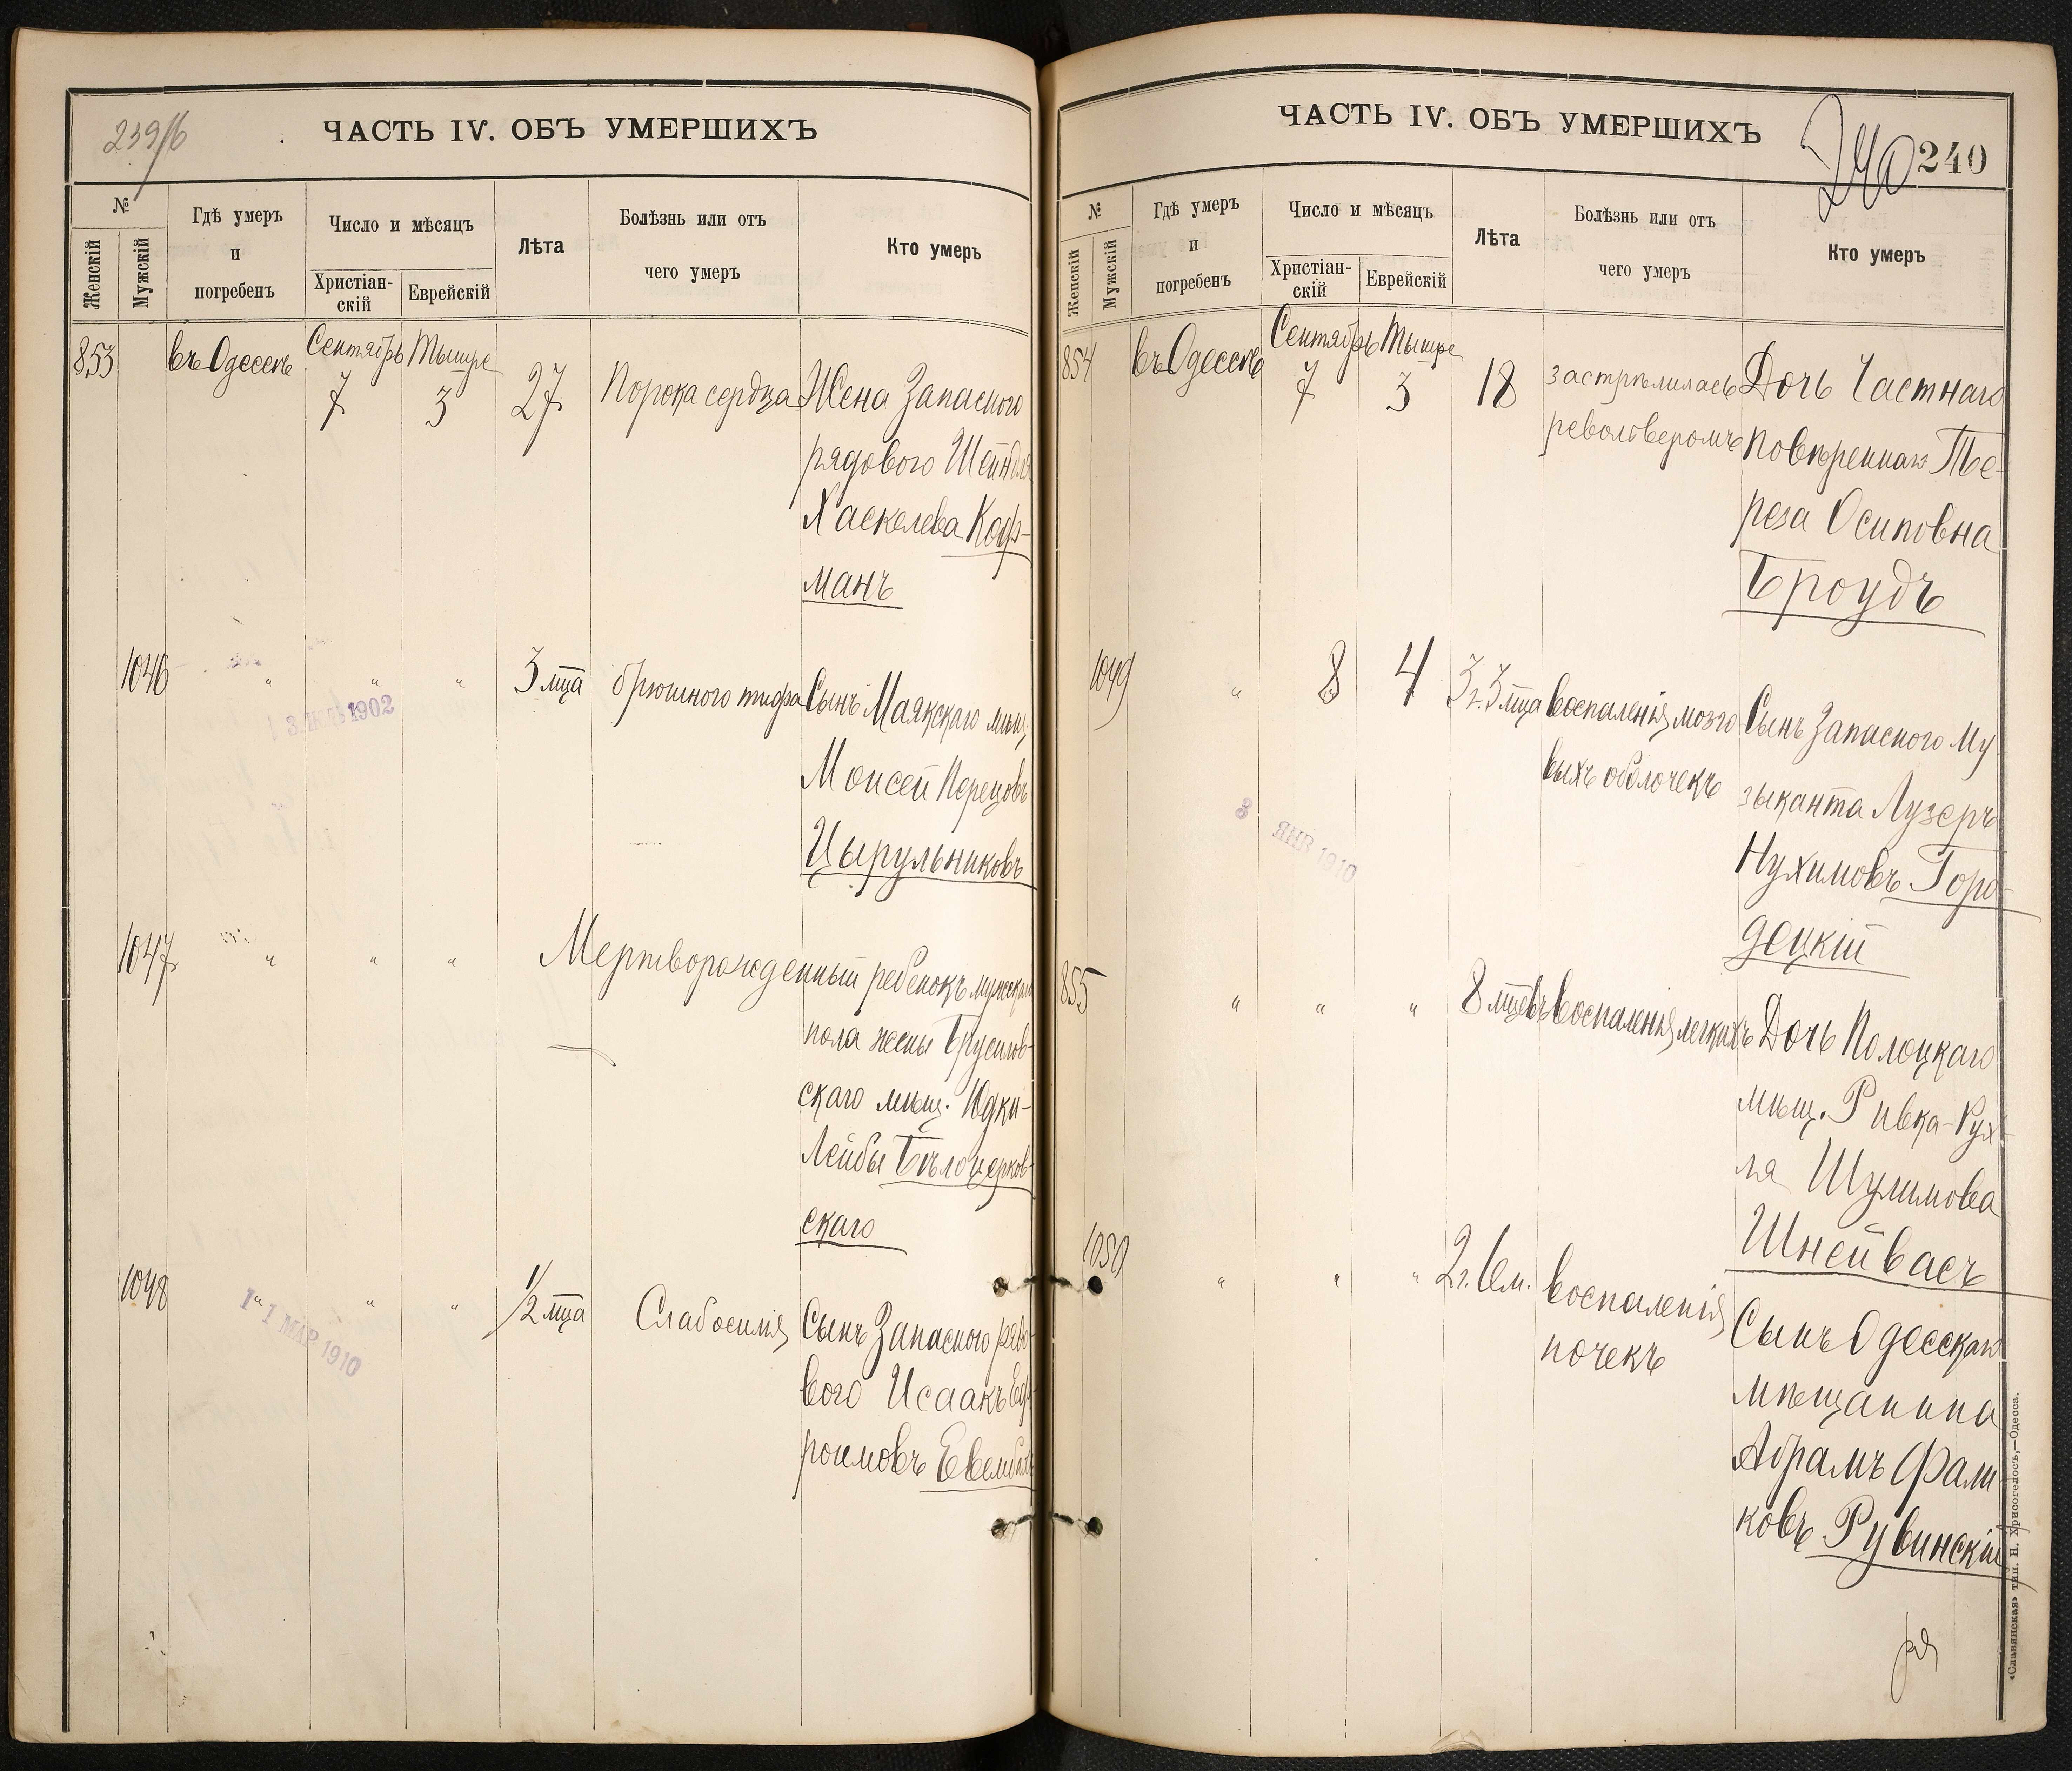 239/б
ЧАСТЬ IV. ОБЪ УМЕРШИХЪ
№
Женскій
Мужскій
Гдѣ умеръ
и
погребенъ
Число и мѣсяцъ
Христіан-
скій
Еврейскій
Лѣта
Болѣзнь или отъ
чего умеръ
Кто умеръ
853 въ Одессѣ Сентябрь Тышре
7 3 27 Порока сердца Жена Запасного
рядового Шейндля
Хаскелева Коф-
манъ
1046 " " " 3 мца брюшного тифа Сынъ Маякскаго мѣщ.
13 1902
Моисей Перецовъ
Цырульниковъ
1047 " " " Мертворожденный ребенокъ мужскаго
пола жены Брусилов-
скаго мѣщ. Юдки-
Лейбы Бѣлоцерков-
скаго
1048 " " " 1/2 мца Слабосилія Сынъ Запасного рядо-
1 МАР 1910
вого Исаакъ Еф-
роимовъ
ЧАСТЬ IV. ОБЪ УМЕРШИХЪ
240 240
№
Женскій
Мужскій
Гдѣ умеръ
и
погребенъ
Число и мѣсяцъ
Христіан-
скій
Еврейскій
Лѣта
Болѣзнь или отъ
чего умеръ
Кто умеръ
854 въ Одессѣ Сентябрь Тышре
7 3 18 застрѣлилась Дочь Частнаго
револьверомъ повѣреннаго Те-
реза Осиповна
Броудъ
1049 " 8 4 3 г. 3 мца воспаленія мозго Сынъ Запасного Му
выхъ оболочекъ зыканта Лузеръ
3 ЯНВ 1910
Нухимовъ Горо-
децкій
855 " " " 8 мцевъ воспаленія легкихъ Дочь Полоцкаго
мѣщ. Ривка-Рух-
ля Шулимова
Шнейвасъ
1050 " " " 2 г. 6 м. воспаленія
почекъ
Сынъ Одесскаго
мѣщанина
Абрамъ Фали
ковъ Рувинскій
«Славянская» тип. Н. Хрисогелосъ,—Одесса.